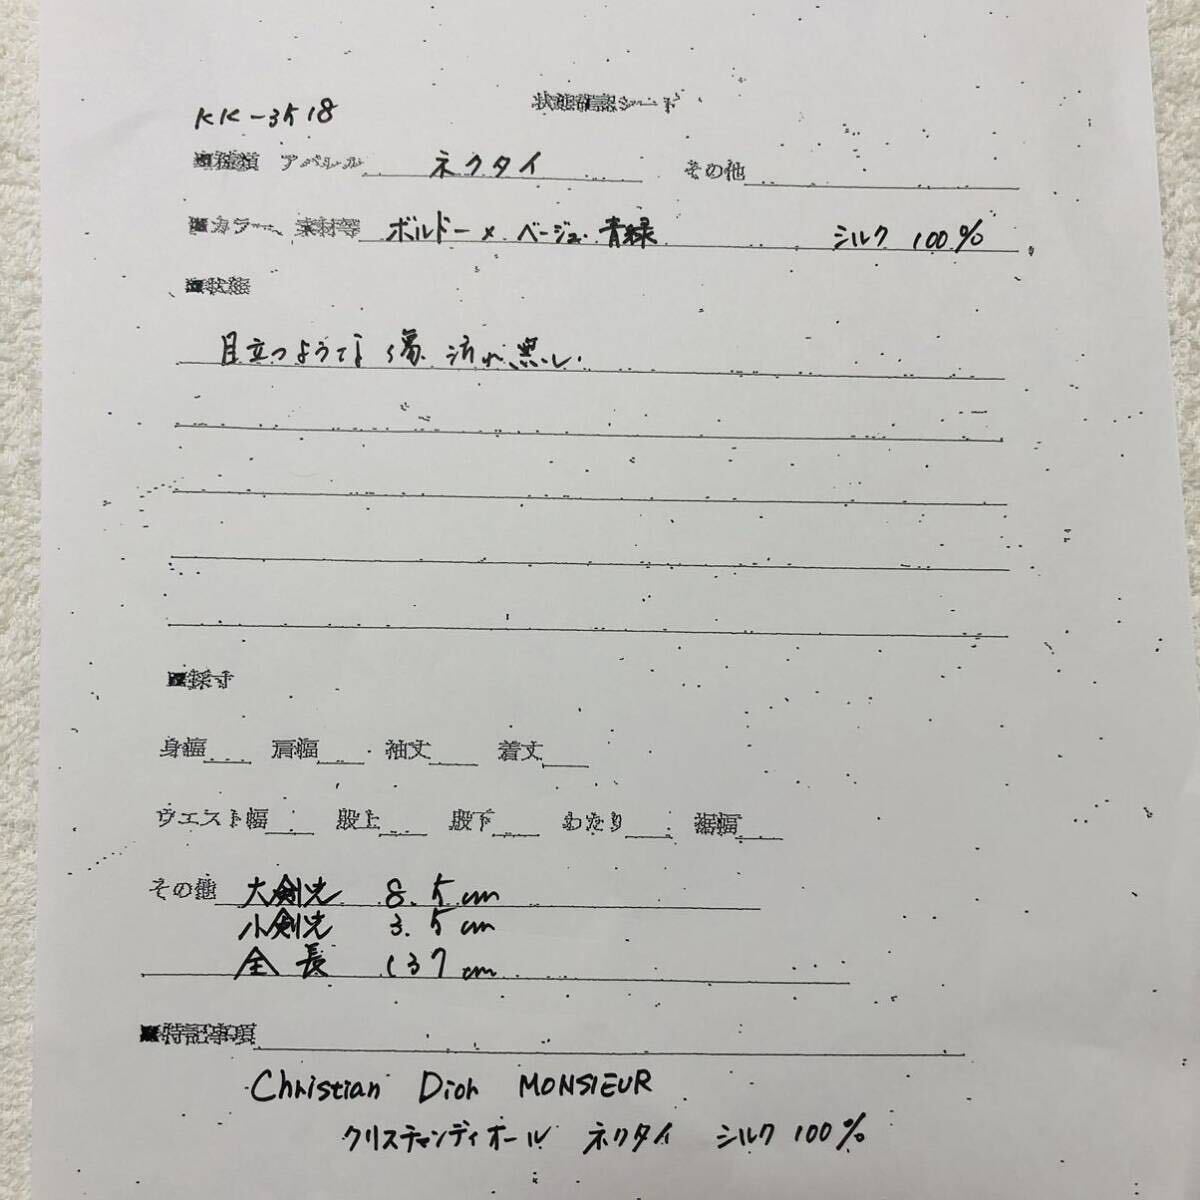 状態確認シート
KK-3518
■種類 アパレル ネクタイ その他
■カラー、素材等 ボルドー×ベージュ・青緑 シルク 100%
■状態
目立つような傷、汚れ無し.
■採寸
身幅 肩幅 袖丈 着丈
ウエスト幅 股上 股下 わたり 裾幅
その他 大剣先 8.5cm
小剣先 3.5cm
全長 137cm
■特記事項
Christian Dior MONSIEUR
クリスチャンディオール ネクタイ シルク 100%